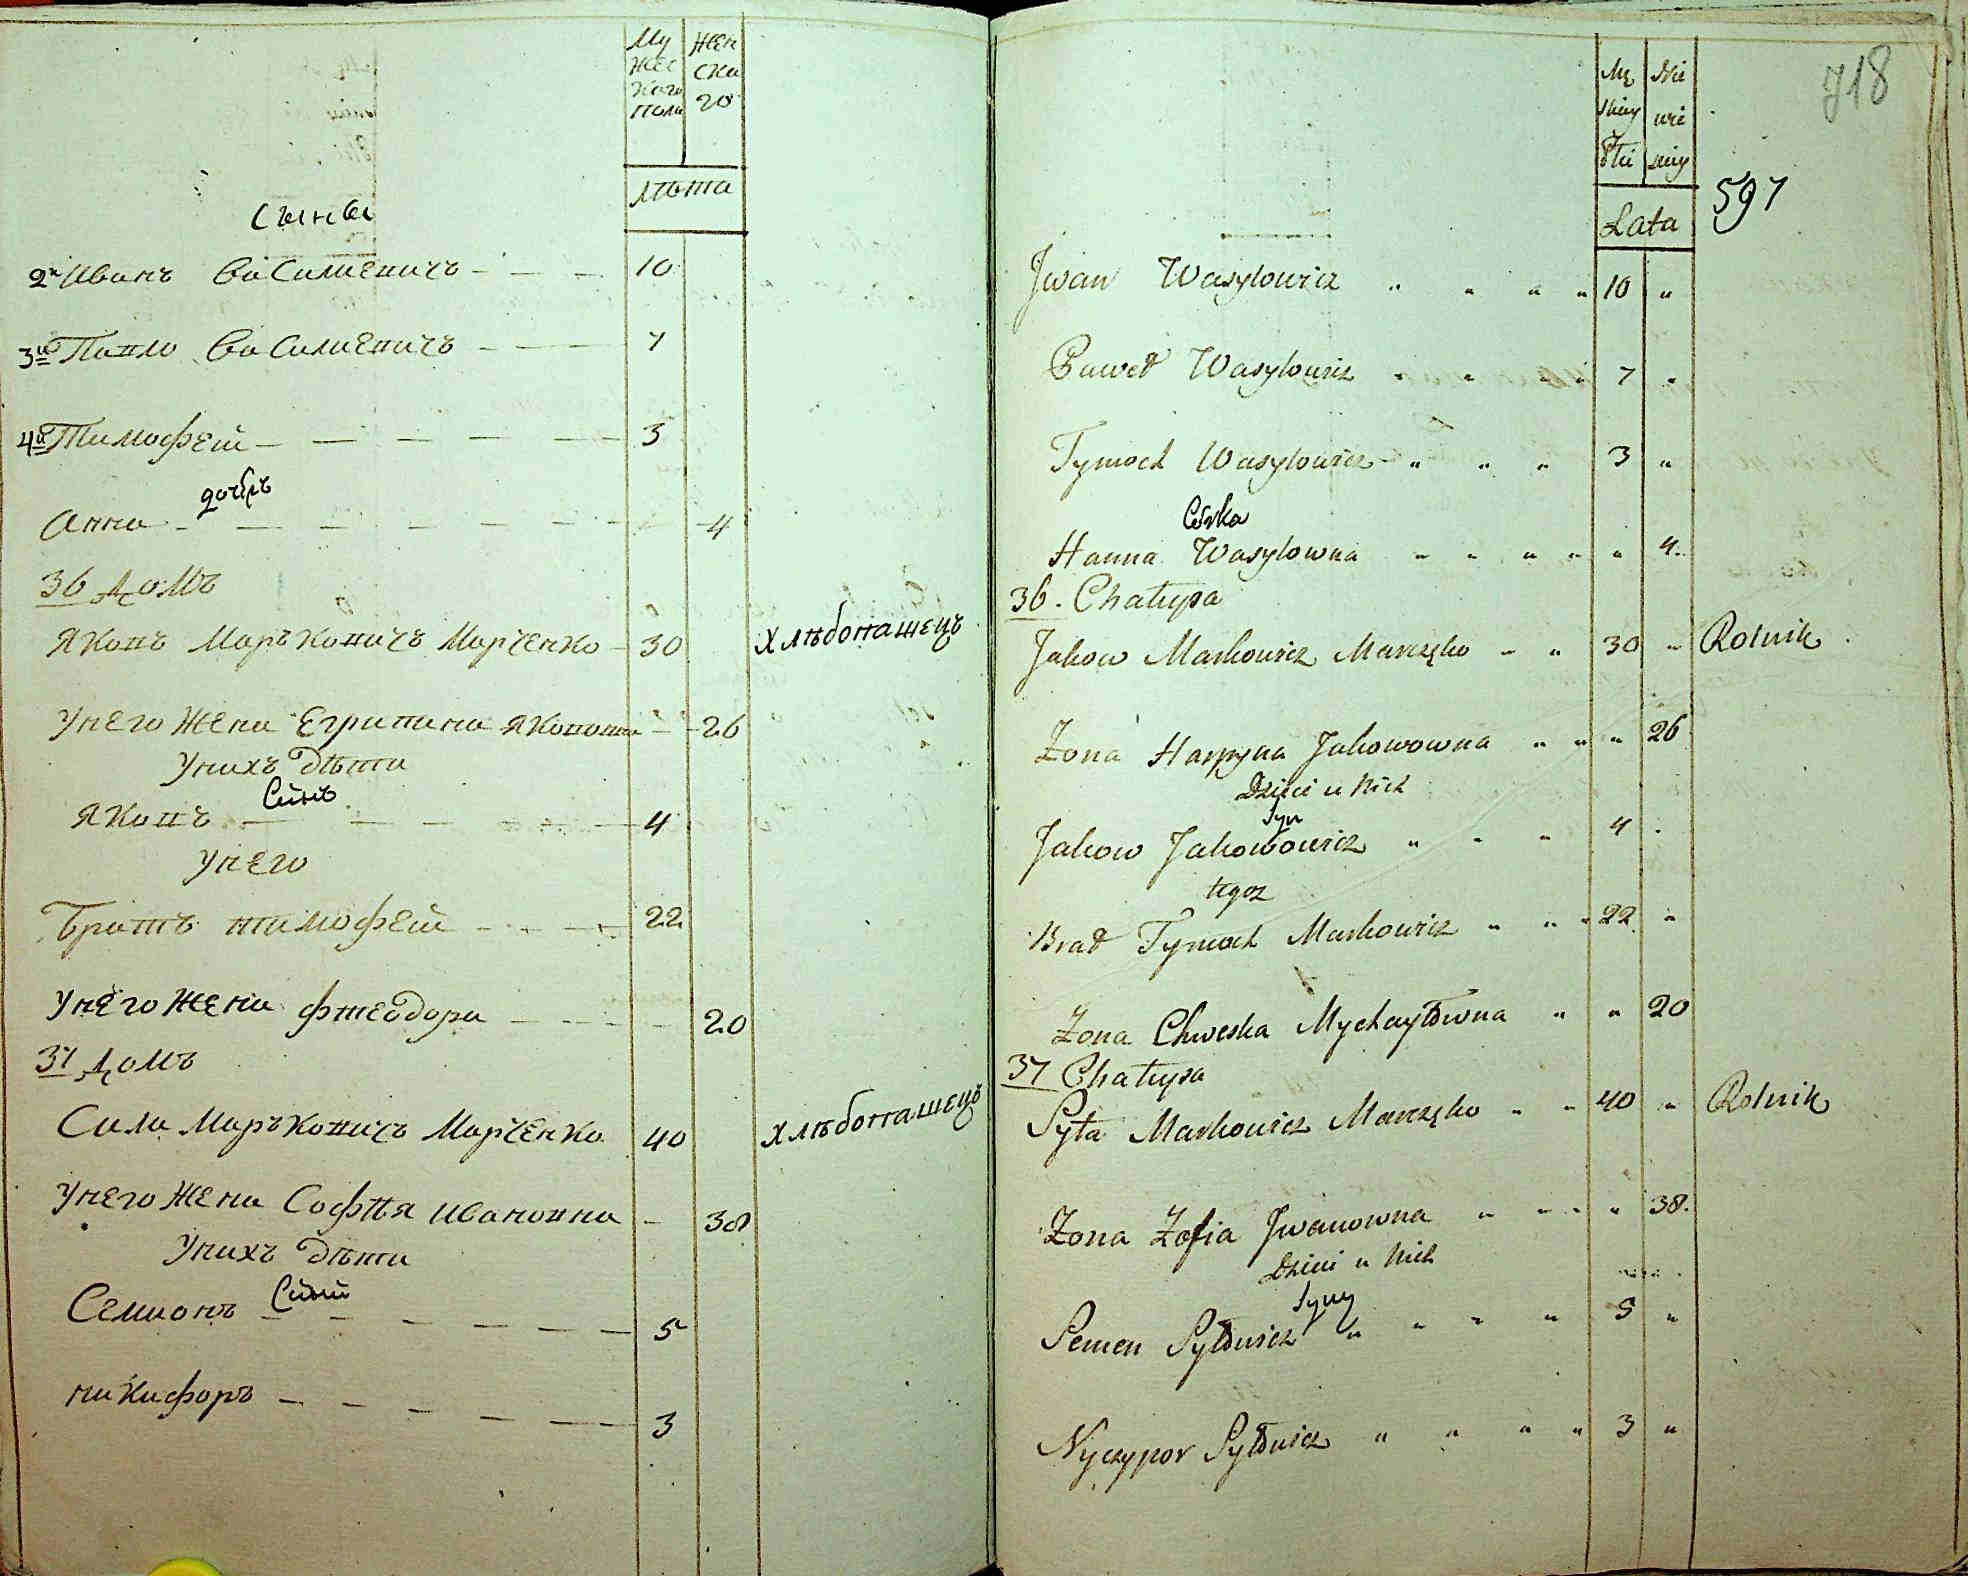 Му
жес
каго
пола
Жен
ска
го
лѣта
Сыны
2й Иванъ Василиевичъ - - - 10
3й Павло Василиевичъ - - - 7
4й Тимофей - - - - - 3
дочерь
Анна - - - - - - 4
36 Домъ
Яковъ Марковичъ Марченко - 30 хлѣбопашецъ
Унего Жена Егрипина Яковова - - 26
Унихъ Дѣти
Сынъ
Яковъ - - - - 4
Унего
Братъ тимофей - - - 22
Унего Жена фтеодора - - - - 20
37 Домъ
Сила Марковичъ Марченко 40 хлѣбопашецъ
Унего Жена Софѣя Ивановна - 38
Унихъ Дѣти
Сыны
Семионъ - - - - - - 5
никифоръ - - - - - 3
718
597
Mę
skiey
Płci
Nie
wie
sciey
Lata
Jwan Wasylowicz " " " " 10 "
Paweł Wasylowicz " " " " 7 "
Tymoch Wasylowicz " " " 3 "
Córka
Hanna Wasylowna " " " " " 4.
36. Chałupa
Jakow Markowicz Marczęko " " 30 " Rolnik
Żona Harpyna Jakowowna " " " 26
Dzieci u Nich
Syn
Jakow Jakowowicz " " " 4 "
tegoż
Brat Tymoch Markowicz " " " 22 "
Żona Chweska Mychayłowna " " 20
37 Chałupa
Syła Markowicz Marczęko " " 40 " Rolnik
Żona Zofia Jwanowna " " " " 38.
Dzieci u Nich
Syny
Semen Syłowicz " " " " 5 "
Nyczypor Syłowicz " " " " 3 "